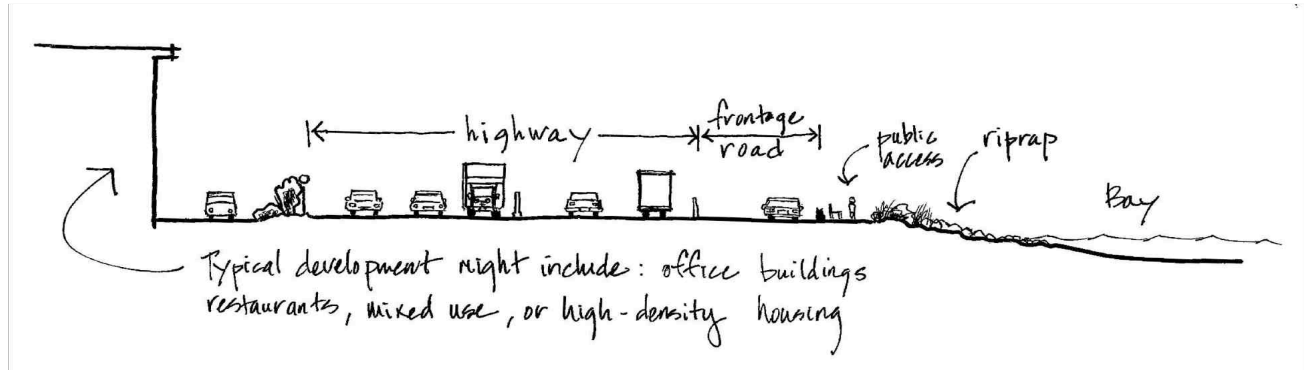 highway
frontage
road
public
access
riprap
Bay
Typical development might include: office buildings
restaurants, mixed use, or high-density housing